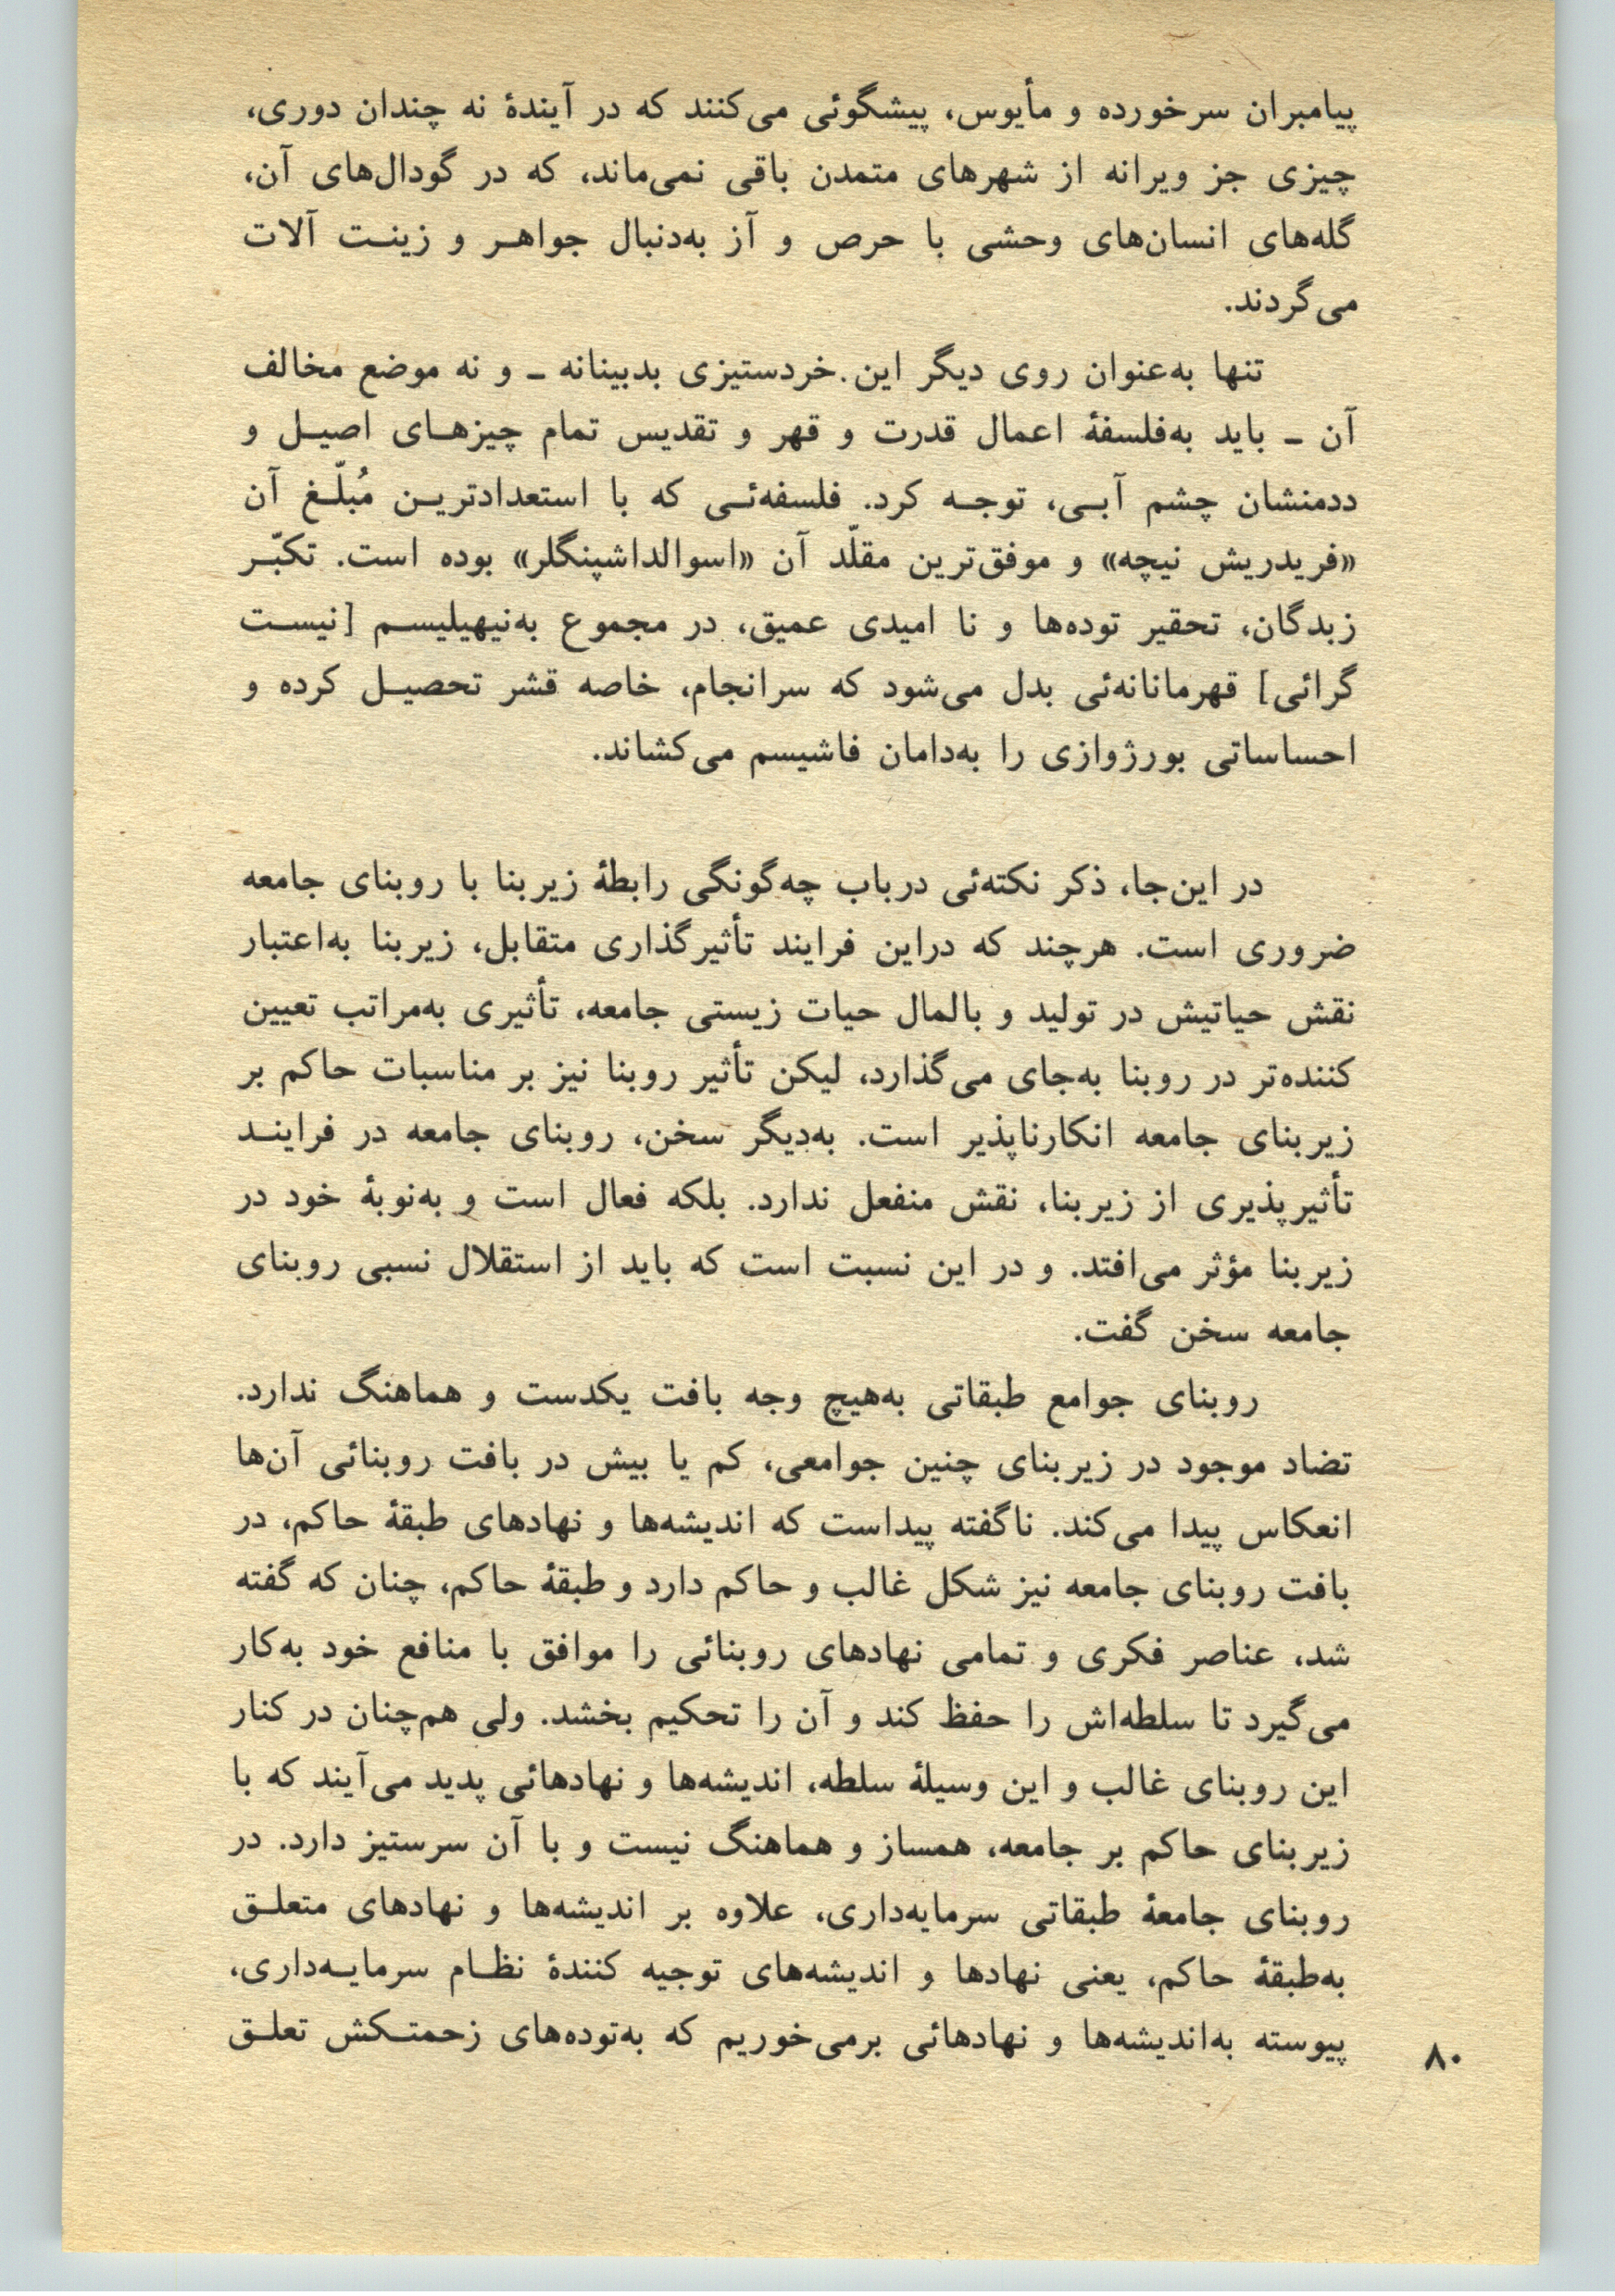 پیامبران سرخورده و مأیوس، پیشگوئی می‌کنند که در آیندۀ نه چندان دوری،
چیزی جز ویرانه از شهرهای متمدن باقی نمی‌ماند، که در گودال‌های آن،
گله‌های انسان‌های وحشی با حرص و آز به‌دنبال جواهر و زینت آلات
می‌گردند.
تنها به‌عنوان روی دیگر این خردستیزی بدبینانه ـ و نه موضع مخالف
آن ـ باید به‌فلسفۀ اعمال قدرت و قهر و تقدیس تمام چیزهای اصیل و
ددمنشان چشم آبی، توجه کرد. فلسفه‌ئی که با استعدادترین مُبلّغ آن
«فریدریش نیچه» و موفق‌ترین مقلّد آن «اسوالداشپنگلر» بوده است. تکبّر
زبدگان، تحقیر توده‌ها و نا امیدی عمیق، در مجموع به‌نیهیلیسم [نیست
گرائی] قهرمانانه‌ئی بدل می‌شود که سرانجام، خاصه قشر تحصیل کرده و
احساساتی بورژوازی را به‌دامان فاشیسم می‌کشاند.
در این‌جا، ذکر نکته‌ئی درباب چه‌گونگی رابطۀ زیربنا با روبنای جامعه
ضروری است. هرچند که دراین فرایند تأثیرگذاری متقابل، زیربنا به‌اعتبار
نقش حیاتیش در تولید و بالمال حیات زیستی جامعه، تأثیری به‌مراتب تعیین
کننده‌تر در روبنا به‌جای می‌گذارد، لیکن تأثیر روبنا نیز بر مناسبات حاکم بر
زیربنای جامعه انکارناپذیر است. به‌دیگر سخن، روبنای جامعه در فرایند
تأثیرپذیری از زیربنا، نقش منفعل ندارد. بلکه فعال است و به‌نوبۀ خود در
زیربنا مؤثر می‌افتد. و در این نسبت است که باید از استقلال نسبی روبنای
جامعه سخن گفت.
روبنای جوامع طبقاتی به‌هیچ وجه بافت یکدست و هماهنگ ندارد.
تضاد موجود در زیربنای چنین جوامعی، کم یا بیش در بافت روبنائی آن‌ها
انعکاس پیدا می‌کند. ناگفته پیداست که اندیشه‌ها و نهادهای طبقۀ حاکم، در
بافت روبنای جامعه نیز شکل غالب و حاکم دارد و طبقۀ حاکم، چنان که گفته
شد، عناصر فکری و تمامی نهادهای روبنائی را موافق با منافع خود به‌کار
می‌گیرد تا سلطه‌اش را حفظ کند و آن را تحکیم بخشد. ولی هم‌چنان در کنار
این روبنای غالب و این وسیلۀ سلطه، اندیشه‌ها و نهادهائی پدید می‌آیند که با
زیربنای حاکم بر جامعه، همساز و هماهنگ نیست و با آن سرستیز دارد. در
روبنای جامعۀ طبقاتی سرمایه‌داری، علاوه بر اندیشه‌ها و نهادهای متعلق
به‌طبقۀ حاکم، یعنی نهادها و اندیشه‌های توجیه کنندۀ نظام سرمایه‌داری،
پیوسته به‌اندیشه‌ها و نهادهائی برمی‌خوریم که به‌توده‌های زحمتکش تعلق
۸۰